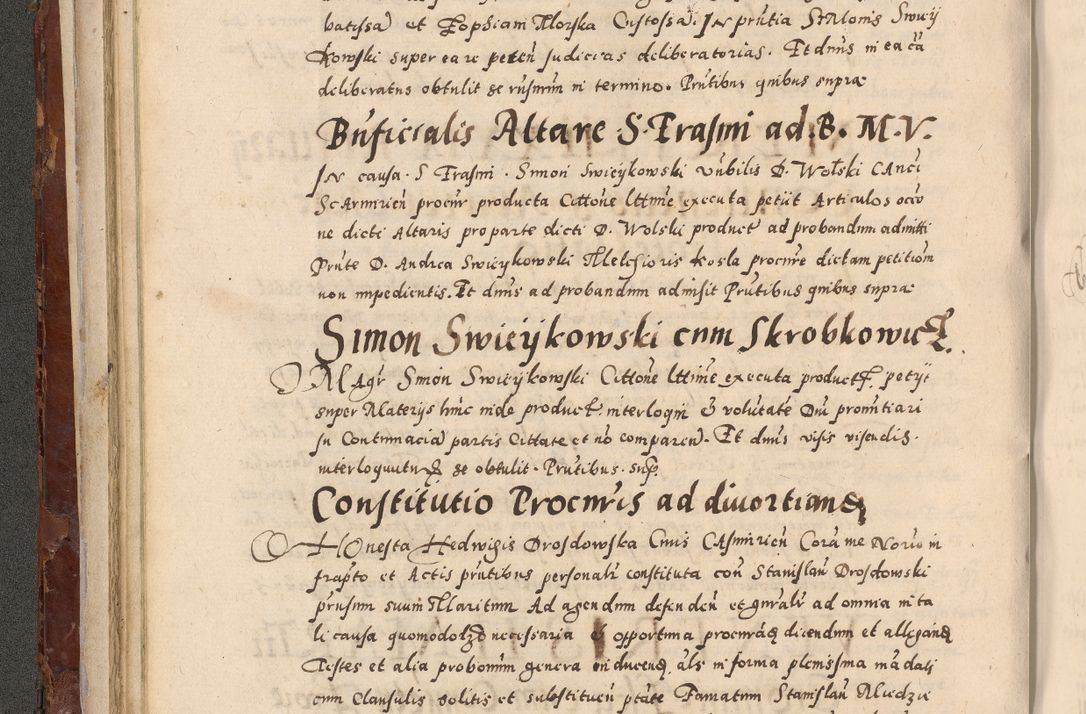 batissa) et Zophiam Morska Custossa). In prńtia S. Mlonis Swieÿ
kowski super ea re peten Judicias deliberatorias. Et dnús in ea ca
deliberatus obtulit se rúsurum in termino. Prńtibus quibus supra
Bńficialis Altare S. Erasmi ad B. M. V.
In causa S Erasmi. Simon Swieÿkowski Vńbilis D. Wolski CAnci
SCArmirień procur producta Cittońe lttime executa petiit Articulos occo
ne dicti Altaris pro parte dicti D. Wolski product ad probandum admitti
Prńte D. Andrea Swieÿkowski Melchioris Kosla procure dictam petitiom
non impedientis. Et dnús ad probandum admisit Prńtibus quibus supra
Simon Swieÿkowski cum Skrobkowicz.
MAgr Simon Swieÿkowski Cittońe lttime executa product, petijt
super Materijs hinc inde product interloqui & volutate Dni pronutiari
In Contumacia partis Cittate et no comparen. Et dnús visis visendis.
interloquutu se obtulit. Prńtibus. sup.
Constitutio Procuris ad divortiand
HOnesta Hedwigis Drosdowska Civis CAsmirień Cora me Notio in
frapto et Actis prńtibus personalr constituta con Stanislau Drosdowski
prńsum suum Maritum Ad agendum defenden et gnralr ad omnia in ta
li causa quomodolzt necessaria & opportuna procurad dicendum et allegand
Testes et alia probonum genera inducend, als in forma plenissima madati
cum Clausulis solitis et substituen ptate Famatum Stanislau Miedzie